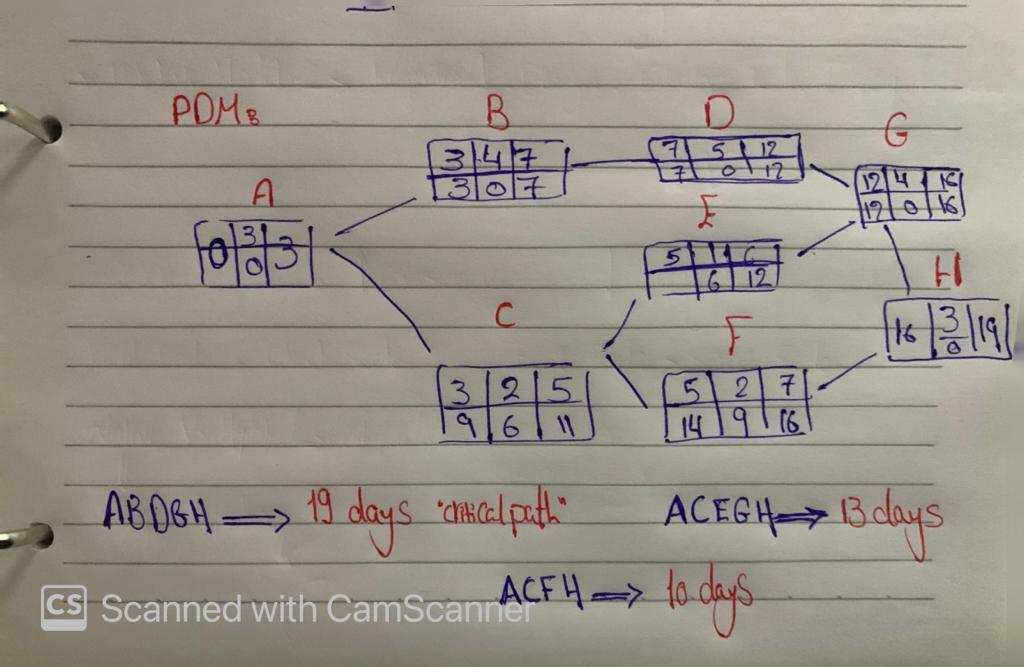 PDM:
B
D
G
3 4 7
3 0 7
7 5 12
7 0 12
12 4 16
12 0 16
A
0 3 3
0
E
5 1 6
6 12
H
16 3 19
0
C
3 2 5
9 6 11
F
5 2 7
14 9 16
ABDGH ⟹ 19 days "critical path"
ACEGH ⟹ 13 days
ACFH ⟹ 10 days
CS Scanned with CamScanner